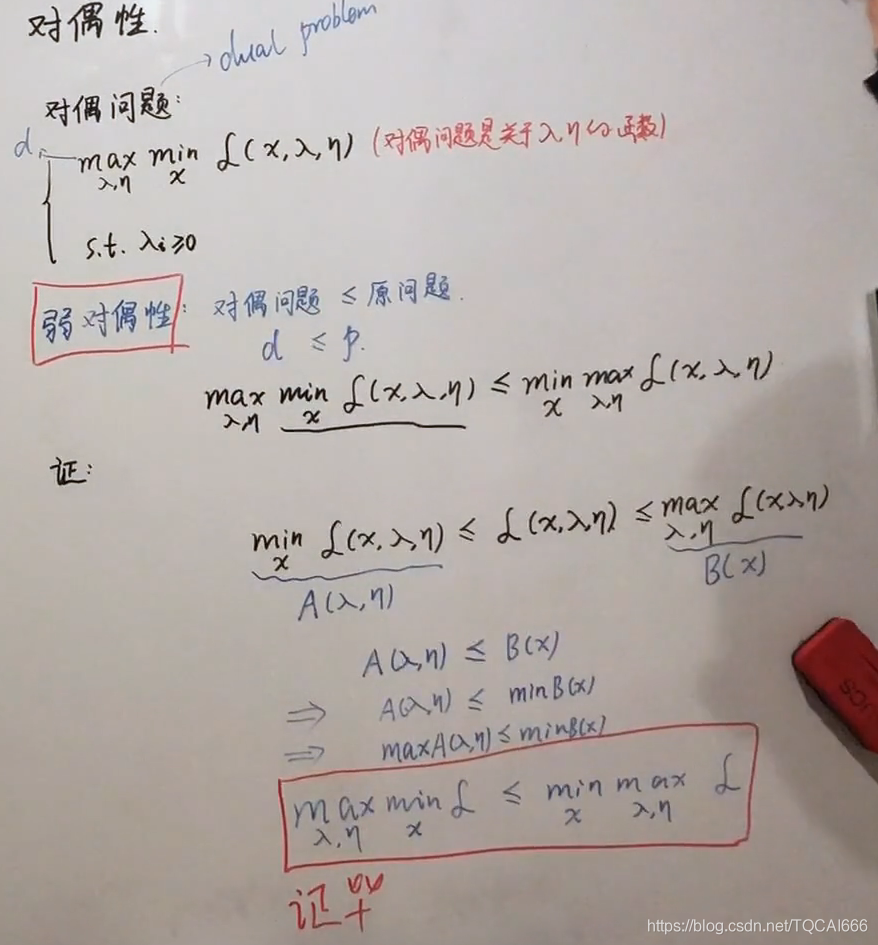 对偶性.
dual problem
对偶问题:
d
max min L(x,λ,η) (对偶问题是关于λ,η的函数)
λ,η x
s.t. λi≥0
弱对偶性: 对偶问题 ≤ 原问题.
d ≤ p.
max min L(x,λ,η) ≤ min max L(x,λ,η)
λ,η x x λ,η
证:
min L(x,λ,η) ≤ L(x,λ,η) ≤ max L(xλη)
x λ,η
A(λ,η) B(x)
A(λ,η) ≤ B(x)
⇒ A(λ,η) ≤ minB(x)
⇒ maxA(λ,η) ≤ minB(x)
max min L ≤ min max L
λ,η x x λ,η
证毕
UCS
https://blog.csdn.net/TQCAI666